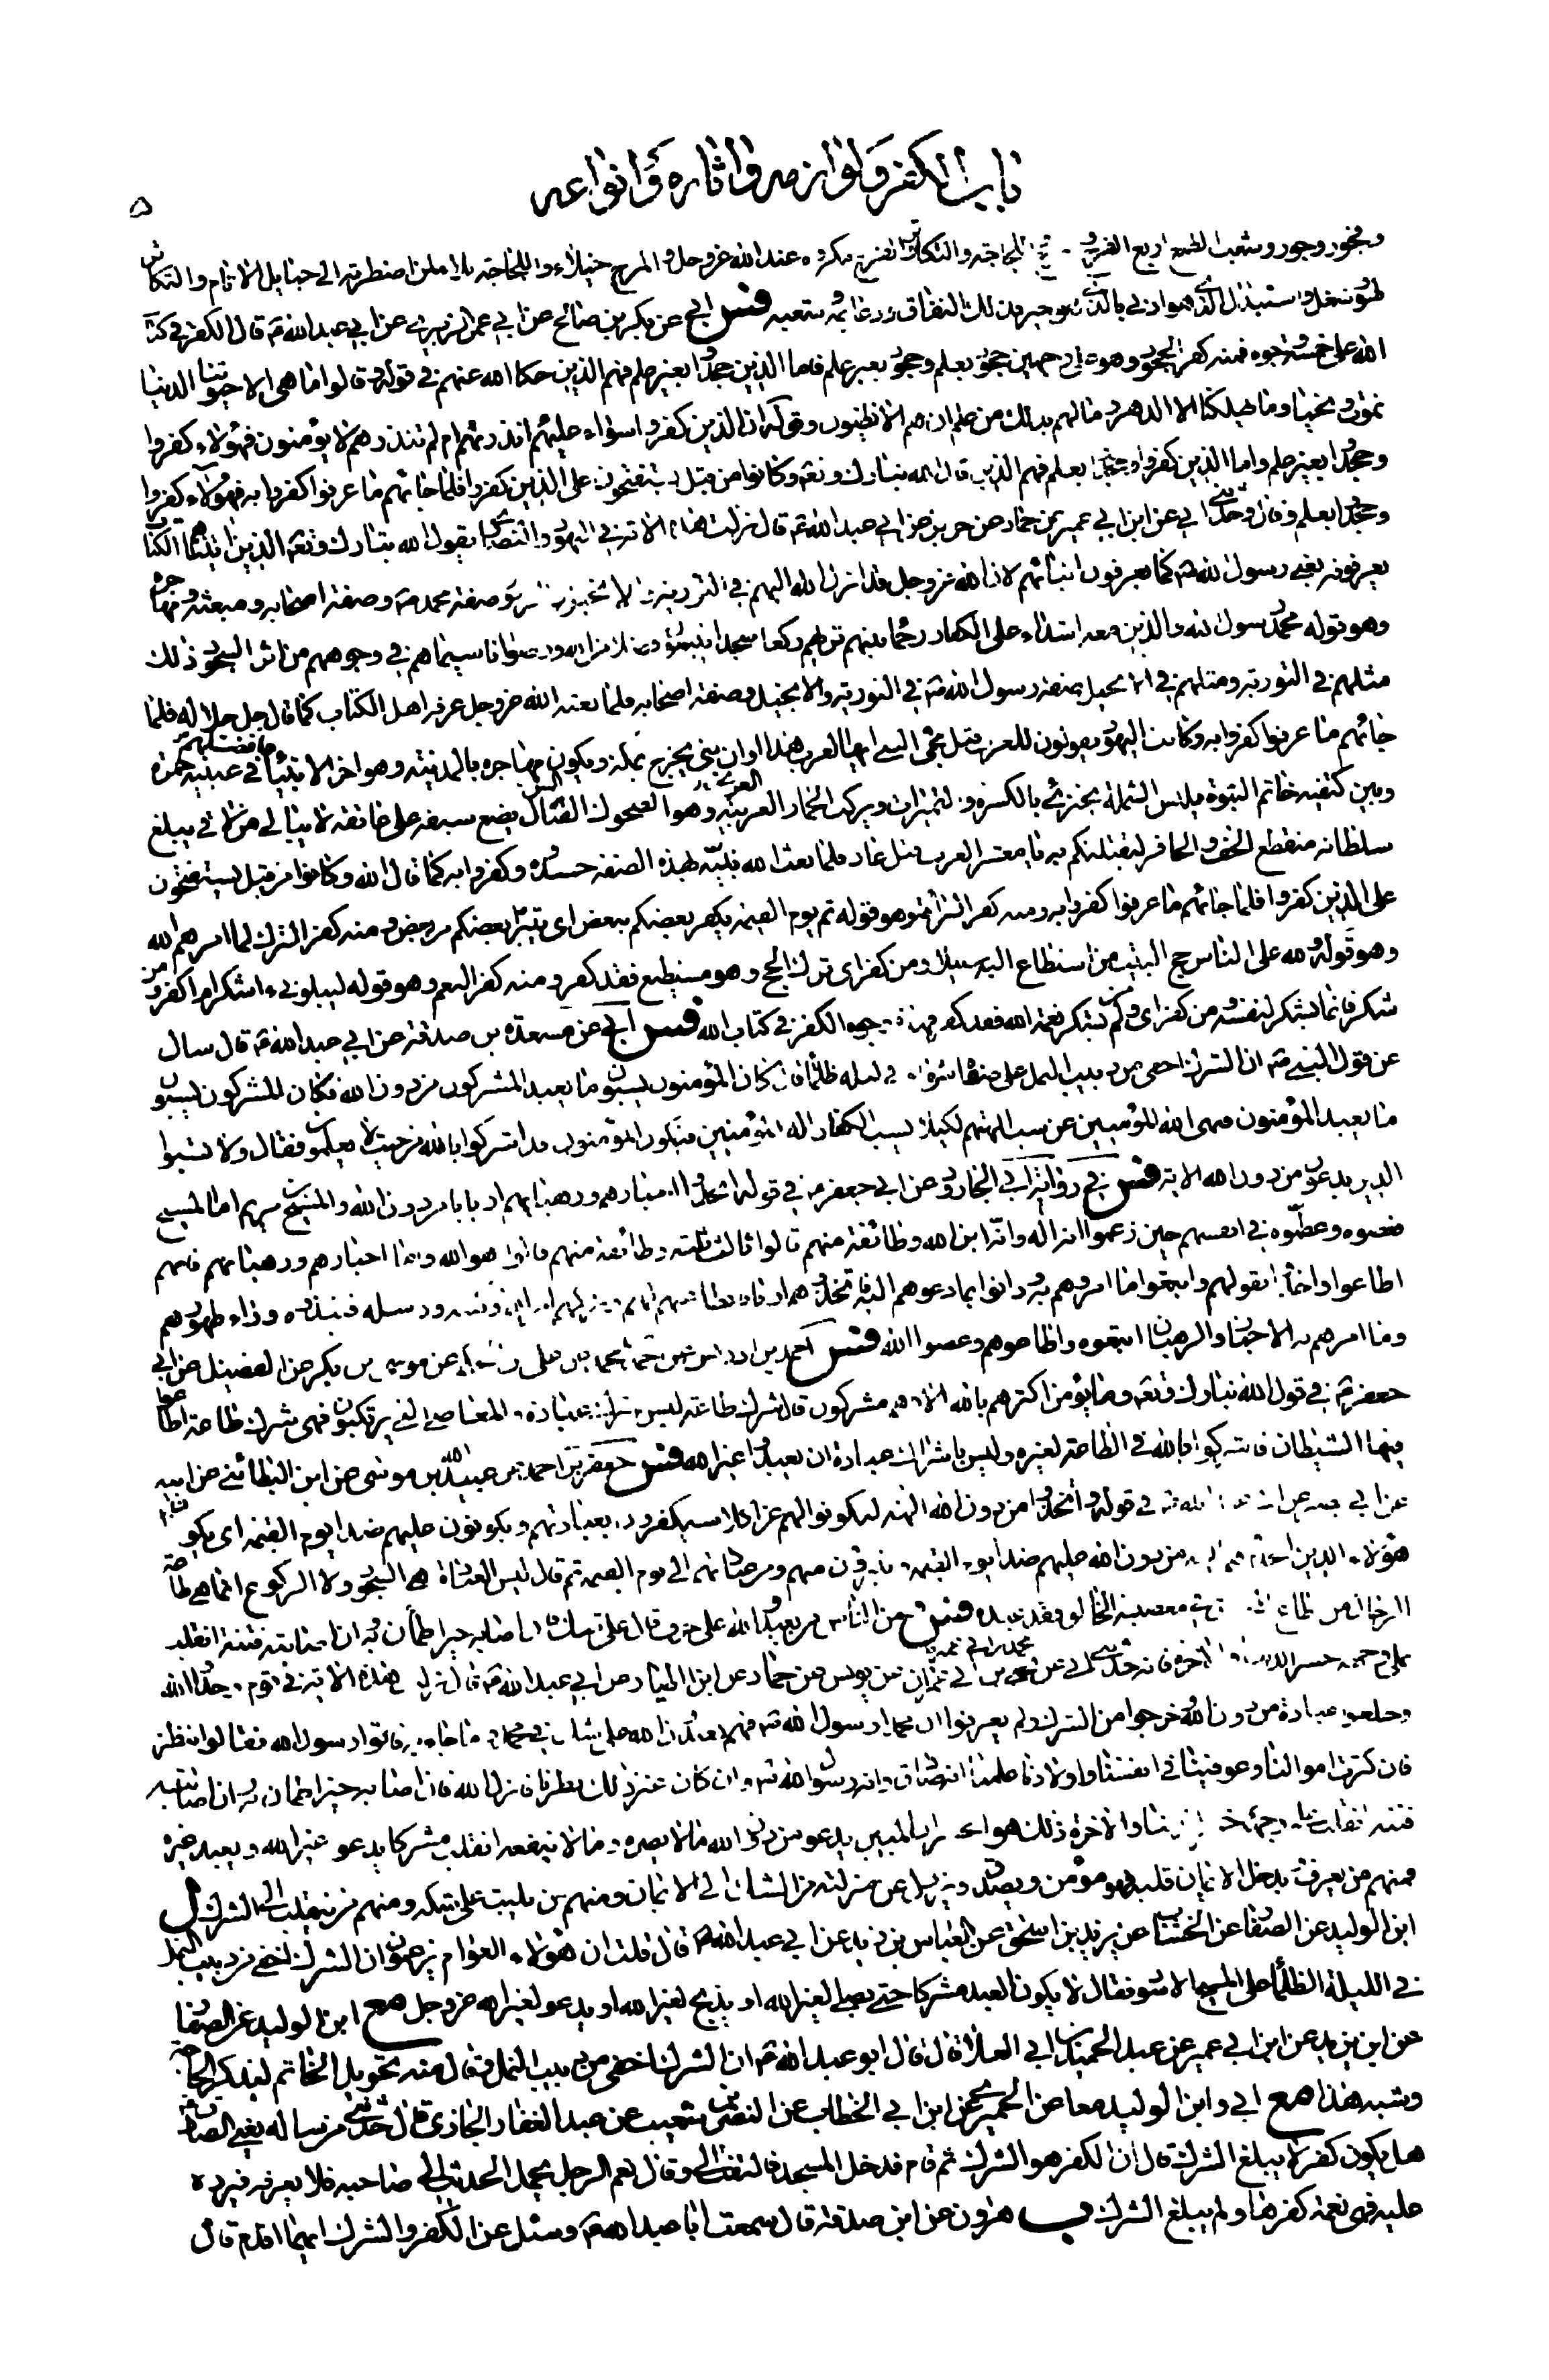 باب الكفر ولوازمه واثاره وانواعه
٥
وفجور وجور وشعب الطمع اربع الفرح و اللجاجة والتكاثر الفرح مكروه عند الله عز وجل والمرح خيلاء واللجاجة بلاء لمن اضطرته الى حبايل الاثام والتكاثر
لهو وشغل واستبدال الذي هو ادنى بالذي هو خير فذلك النفاق ودعائمه وشعبه فس ابي عن بكر بن صالح عن ابي عمر الزبيري عن ابي عبد الله ع قال الكفر في كتاب
الله على خمسة وجوه فمنه كفر الجحود وهو على وجهين جحود بعلم وجحود بغير علم فاما الذين جحدوا بغير علم فهم الذين حكا الله عنهم في قوله وقالوا ما هي الا حيوتنا الدنيا
نموت ونحيا وما يهلكنا الا الدهر وما لهم بذلك من علم ان هم الا يظنون وقوله ان الذين كفروا سواء عليهم انذرتهم ام لم تنذرهم لا يؤمنون فهؤلاء كفروا
وجحدوا بغير علم واما الذين كفروا وجحدوا بعلم فهم الذين قال الله تبارك وتعه وكانوا من قبل يستفتحون على الذين كفروا فلما جائهم ما عرفوا كفروا به فهؤلاء كفروا
وجحدوا بعلم وقال وحدثني ابي عن ابن ابي عمير عن حماد عن حريز عن ابي عبد الله ع قال نزلت هذه الاية في اليهود والنصارى يقول الله تبارك وتعه الذين اتيناهم الكتاب
يعرفونه يعني رسول الله ص كما يعرفون ابنائهم لان الله عز وجل قد انزل الله اليهم في التورية والانجيل والزبور صفة محمد ص وصفة اصحابه ومبعثه ومهاجره
وهو قوله محمد رسول الله والذين معه اشداء على الكفار رحماء بينهم تريهم ركعا سجدا يبتغون فضلا من الله ورضوانا سيماهم في وجوههم من اثر السجود ذلك
مثلهم في التورية ومثلهم في الانجيل فهذه صفة رسول الله ص في التورية والانجيل وصفة اصحابه فلما بعثه الله عز وجل عرفه اهل الكتاب كما قال جل جلاله فلما
جائهم ما عرفوا كفروا به وكانت اليهود يقولون للعرب قبل مجئ النبي ايها العرب هذا اوان نبي يخرج بمكة ويكون مهاجره بالمدينة وهو اخر الانبياء وافضلهم في عينيه حمرة
وبين كتفيه خاتم النبوة يلبس الشملة يجتزئ بالكسرة والتميرات ويركب الحمار العرية وهو الضحوك القتال يضع سيفه على عاتقه لا يبالي من لاقى يبلغ
سلطانه منقطع الخف والحافر ليقتلنكم به يا معشر العرب قتل عاد فلما بعث الله نبيه بهذه الصفة حسدوه وكفروا به كما قال الله وكانوا من قبل يستفتحون
على الذين كفروا فلما جائهم ما عرفوا كفروا به ومنه كفر البرائة وهو قوله ثم يوم القيمة يكفر بعضكم ببعض اى يتبرأ بعضكم من بعض ومنه كفر الترك لما امرهم الله
وهو قوله ولله على الناس حج البيت من استطاع اليه سبيلا ومن كفر اى ترك الحج وهو مستطيع فقد كفر ومنه كفر النعم وهو قوله ليبلوني ءاشكر ام اكفر ومن
شكر فانما يشكر لنفسه ومن كفر اى ومن لم يشكر نعمة الله فقد كفر فهذه وجوه الكفر في كتاب الله فس ابي عن مسعدة بن صدقة عن ابي عبد الله ع قال سال
عن قول النبي ص ان الشرك اخفى من دبيب النمل على صفاة سوداء في ليلة ظلماء قال كان المؤمنون يسبون ما يعبد المشركون من دون الله فكان المشركون يسبون
ما يعبد المؤمنون فنهى الله المؤمنين عن سب الهتهم لكيلا يسب الكفار اله المؤمنين فيكون المؤمنون قد اشركوا بالله من حيث لا يعلمون فقال ولا تسبوا
الذين يدعون من دون الله الاية فس في رواية ابي الجارود عن ابي جعفر ع في قوله اتخذوا احبارهم ورهبانهم اربابا من دون الله والمسيح بن مريم اما المسيح
فعصوه وعظموه في انفسهم حين زعموا انه اله وانه ابن الله وطائفة منهم قالوا ثالث ثلثة وطائفة منهم قالوا هو الله واما احبارهم ورهبانهم فانهم
اطاعوا واخذوا بقولهم واتبعوا ما امروهم به ودانوا بما دعوهم اليه فاتخذوهم اربابا بطاعتهم لهم وتركهم امر الله وكتبه ورسله فنبذوه وراء ظهورهم
وما امرهم به الاحبار والرهبان اتبعوه واطاعوهم وعصوا الله فس احمد بن ادريس عن احمد بن محمد عن علي بن عن موسى بن بكر عن الفضيل عن ابي
جعفر ع في قول الله تبارك وتعه وما يؤمن اكثرهم بالله الا وهم مشركون قال شرك طاعة ليس شرك عبادة والمعاصي التي يرتكبون فهي شرك طاعة اطاعوا
فيها الشيطان فاشركوا بالله في الطاعة لغيره وليس باشراك عبادة ان يعبدوا غير الله فس جعفر بن احمد عن عبيد الله بن موسى عن ابن البطائني عن ابيه
عن ابي بصير عن ابي عبد الله ع في قوله واتخذوا من دون الله الهة ليكونوا لهم عزا كلا سيكفرون بعبادتهم ويكونون عليهم ضدا يوم القيمة اى يكون
هؤلاء الذين اتخذوهم الهة من دون الله عليهم ضدا يوم القيمة ويتبرؤن منهم ومن عبادتهم الى يوم القيمة ثم قال ليس العبادة هي السجود ولا الركوع انما هي طاعة
الرجال من اطاع في معصية الخالق فقد عبده فس ومن الناس من يعبد الله على حرف قال على شك فان اصابه خير اطمأن به وان اصابته فتنة انقلب
على وجهه خسر الدنيا والاخرة فانه حدثني ابي عن محمد بن ابي عمير عن يونس عن حماد عن ابن الطيار عن ابي عبد الله ع قال نزلت هذه الاية في قوم وحدوا الله
وخلعوا عبادة من دون الله وخرجوا من الشرك ولم يعرفوا ان محمدا رسول الله ص فهم يعبدون الله على شك في محمد وما جاء به فاتوا رسول الله فقالوا ننظر
فان كثرت اموالنا وعوفينا في انفسنا واولادنا علمنا انه صادق وانه رسول الله ص وان كان غير ذلك نظرنا فانزل الله فان اصابه خير اطمأن به وان اصابته
فتنة انقلب على وجهه خسر الدنيا والاخرة ذلك هو الخسران المبين يدعو من دون الله ما لا يضره وما لا ينفعه انقلب مشركا يدعو غير الله ويعبد غيره
فمنهم من يعرف يدخل الايمان قلبه فهو مؤمن ويصدق ويزيل عن منزلته من الشك الى الايمان ومنهم من يلبث على شكه ومنهم من ينقلب الى الشرك ل
ابن الوليد عن الصفار عن الخشاب عن يزيد بن اسحق عن العباس بن يزيد عن ابي عبد الله ع قال قلت ان هؤلاء العوام يزعمون ان الشرك اخفى من دبيب النمل
في الليلة الظلماء على المسح الاسود فقال لا يكون العبد مشركا حتى يصلي لغير الله او يذبح لغير الله او يدعو لغير الله عز وجل مع ابن الوليد عن الصفار
عن ابن يزيد عن ابن ابي عمير عن عبد الحميد بن ابي العلا قال قال ابو عبد الله ع ان الشرك اخفى من دبيب النمل وقال منه تحويل الخاتم ليذكر الحاجة
وشبه هذا مع ابي وابن الوليد معا عن الحميري عن ابن ابي الخطاب عن النضر بن شعيب عن عبد الغفار الجازي قال حدثني من ساله يعني الصادق ع
هل يكون كفر لا يبلغ الشرك قال ان الكفر هو الشرك ثم قام فدخل المسجد فالتفت الي وقال نعم الرجل يحمل الحديث الى صاحبه فلا يعرفه فيرده
عليه فهي نعمة كفرها ولم يبلغ الشرك ب هرون عن ابن صدقة قال سمعت ابا عبد الله ع وسئل عن الكفر والشرك ايهما اقدم قال